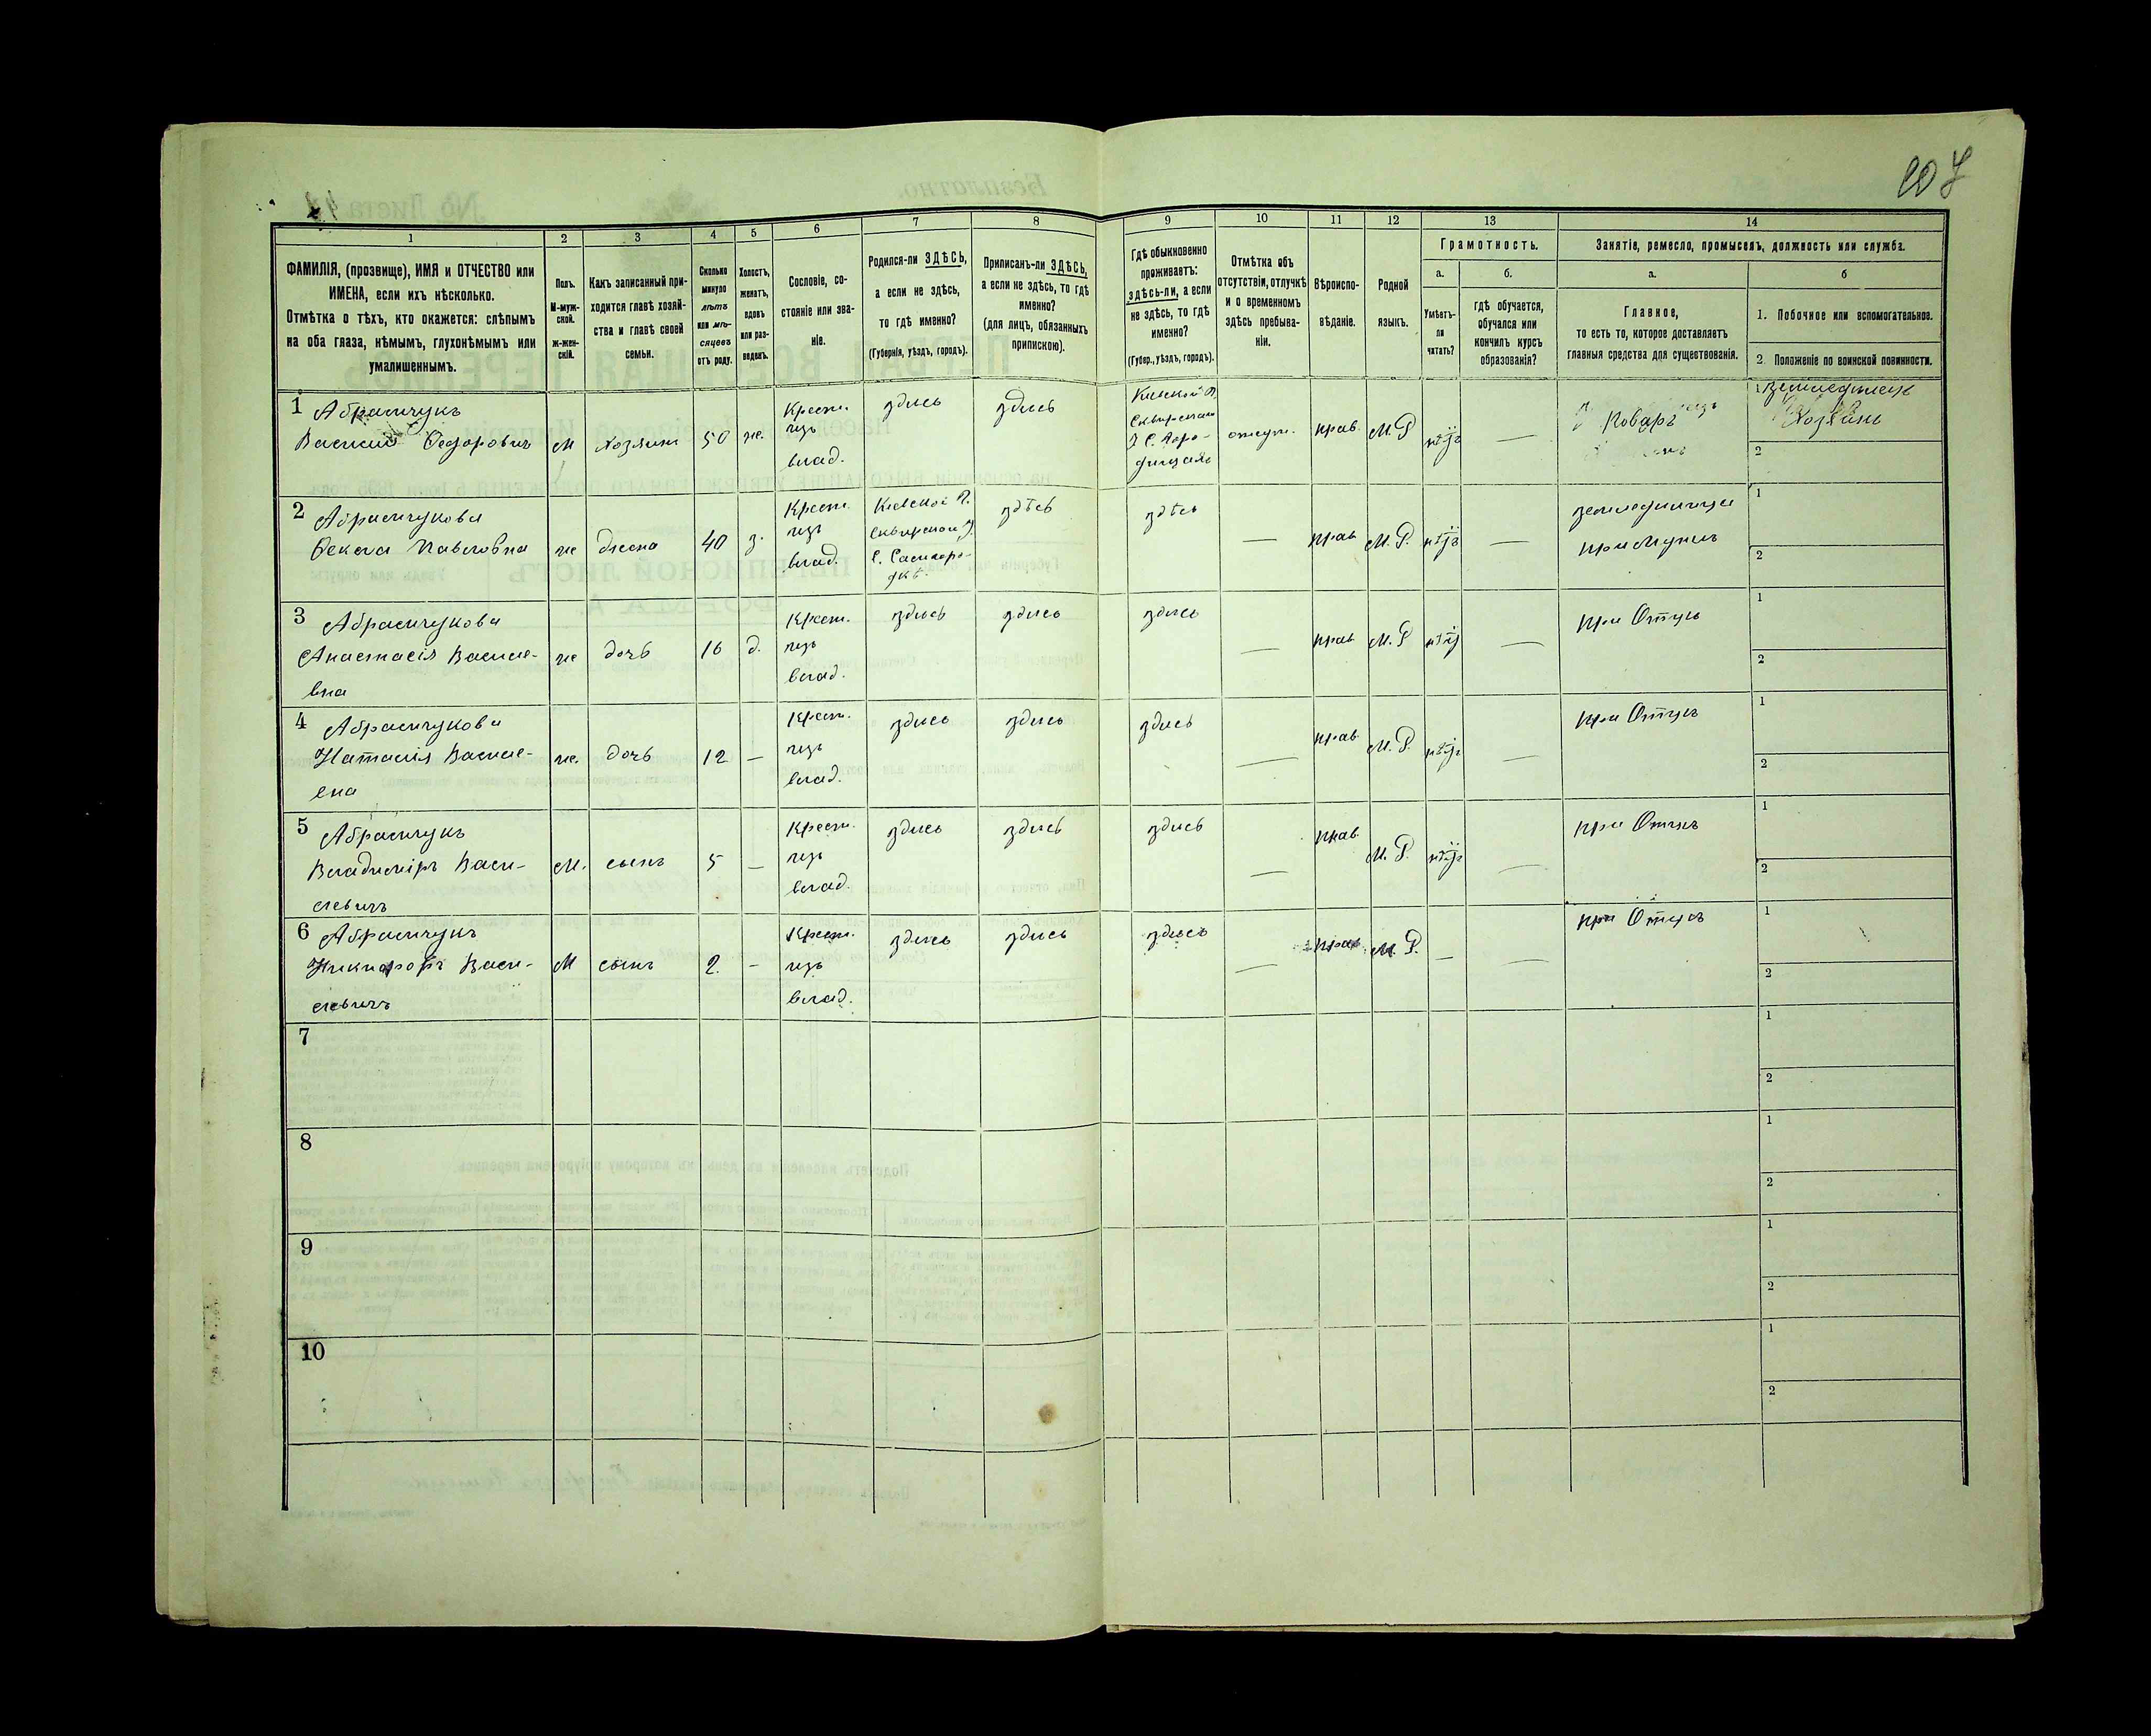 207
1 2 3 4 5 6 7 8 9 10 11 12 13 14
ФАМИЛІЯ, (прозвище), ИМЯ и ОТЧЕСТВО или
ИМЕНА, если ихъ нѣсколько.
Отмѣтка о тѣхъ, кто окажется: слѣпымъ
на оба глаза, нѣмымъ, глухонѣмымъ или
умалишеннымъ.
Полъ.
М-муж-
ской.
ж-жен-
скій.
Какъ записанный при-
ходится главѣ хозяй-
ства и главѣ своей
семьи.
Сколько
минуло
лѣтъ
или мѣ-
сяцевъ
отъ роду.
Холостъ,
женатъ,
вдовъ
или раз-
веденъ.
Сословіе, со-
стояніе или зва-
ніе.
Родился-ли ЗДѢСЬ,
а если не здѣсь,
то гдѣ именно?
(Губернія, уѣздъ, городъ).
Приписанъ-ли ЗДѢСЬ,
а если не здѣсь, то гдѣ
именно?
(для лицъ, обязанныхъ
припискою).
Гдѣ обыкновенно
проживаетъ:
здѣсь-ли, а если
не здѣсь, то гдѣ
именно?
(Губер., уѣздъ, городъ).
Отмѣтка объ
отсутствіи, отлучкѣ
и о временномъ
здѣсь пребыва-
ніи.
Вѣроиспо-
вѣданіе.
Родной
языкъ.
Грамотность.
а.
Умѣетъ-
ли
читать?
б.
гдѣ обучается,
обучался или
кончилъ курсъ
образованія?
Занятіе, ремесло, промыселъ, должность или служба.
а.
Главное,
то есть то, которое доставляетъ
главныя средства для существованія.
б
1. Побочное или вспомогательное.
2. Положеніе по воинской повинности.
1 Абрамчукъ
Василий Федоровичъ
М
хозяинъ
50
ж.
Крест.
изъ
влад.
здись
здись
Киевской Г.
Сквирскаго
У С.
отсут.
прав.
М. Р
нѣтъ
—
Коваръ
1 земледѣлецъ
Хозяинъ
2
2 Абрамчукова
Фекла Павловна
же
жена
40
з.
Крест.
изъ
влад.
Киевской Г.
Сквирской У.
С.
здѣсь
здѣсь
—
прав
М. Р.
нѣтъ
—
земледилица
при Мужи
1
2
3 Абрамчукова
Анастасія Васи-
вна
же
дочь
16
д.
Крест.
изъ
влад.
здись
здись
здись
—
прав
М. Р
нѣтъ
—
при Отцъ
1
2
4 Абрамчукова
Наталія Васи-
вна
же.
дочь
12
—
Крест.
изъ
влад.
здись
здись
здись
—
прав
М. Р.
нѣтъ
—
при Отцъ
1
2
5 Абрамчукъ
Владиміръ Васи-
левичъ
М.
сынъ
5
—
Крест.
изъ
влад.
здись
здись
здись
—
прав
М. Р.
нѣтъ
—
при Отцъ
1
2
6 Абрамчукъ
Никифоръ Васи-
левичъ
М
сынъ
2.
—
Крест.
изъ
влад.
здись
здись
здись
—
прав
М. Р.
—
—
при Отцъ
1
2
7
1
2
8
1
2
9
1
2
10
1
2